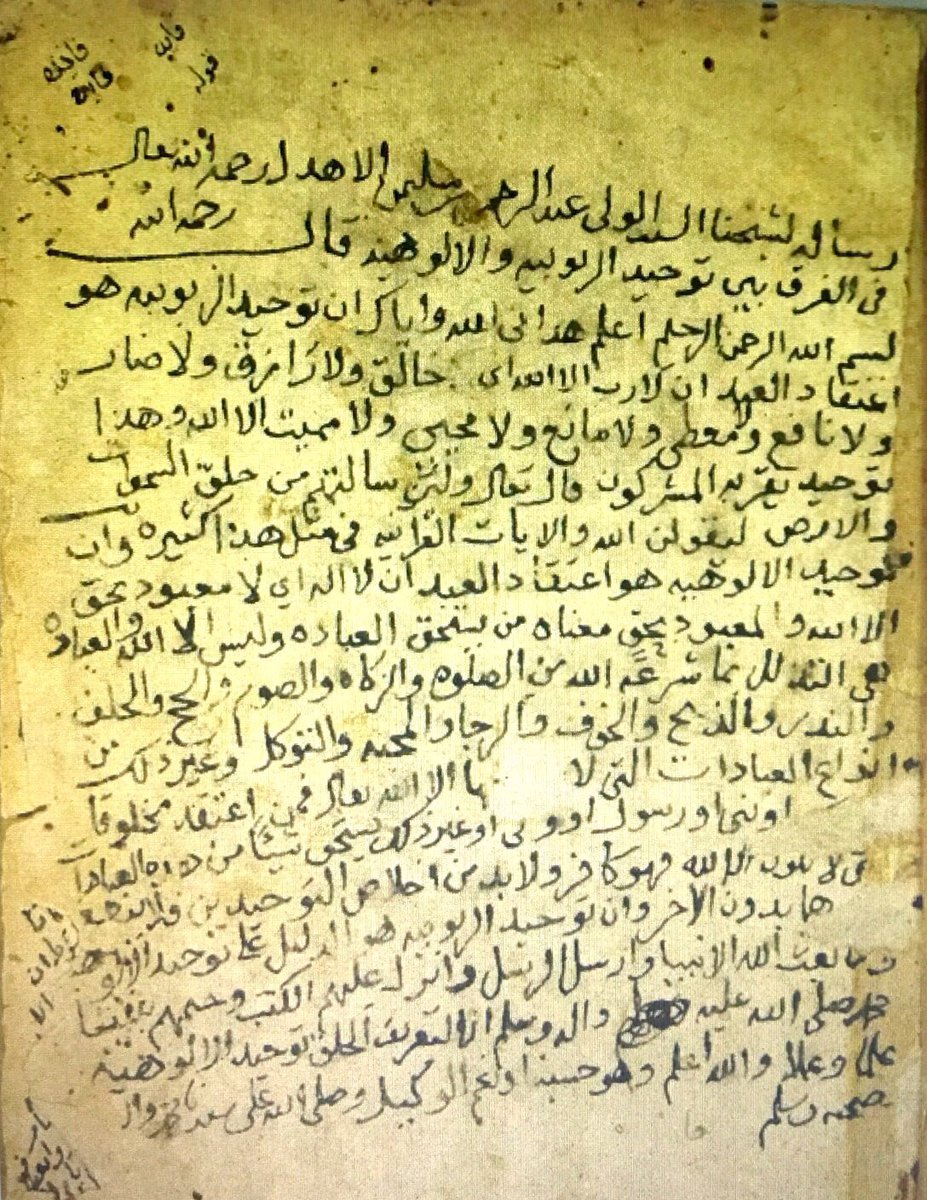 رساله لشيخنا السيد الولي عبد الرحمن بن سليمن الاهدل رحمه الله تعالى
في الفرق بين توحيد الربوبيه والالوهيه قال رحمه الله
بسم الله الرحمن الرحيم اعلم هداني الله واياك ان توحيد الربوبيه هو
اعتقاد العبد ان لا رب الا الله اي خالق ولا رازق ولا ضار
ولا نافع ولا معطي ولا مانع ولا محيي ولا مميت الا الله وهذا
توحيد يقر به المشركون قال تعالى ولئن سالتهم من خلق السموات
والارض ليقولن الله والايات القرانيه في مثل هذا كثيره وان
توحيد الالوهيه هو اعتقاد العبد ان لا اله اي لا معبود بحق
الا الله والمعبود بحق معناه من يستحق العباده وليس الا الله والعباده
هي التذلل بما شرعه الله من الصلوه والزكاه والصوم والحج والحلف
والنذر والذبح والخوف والرجا والمحبه والتوكل وغير ذلك من
انواع العبادات التي لا الا الله تعالى فمن اعتقد مخلوقا
او نبي او رسول او ولي او غير ذلك يستحق شيئا من العبادات
لا الا لله فهو كافر ولا بد من اخلاص التوحيدين
هما بدون الاخر وان توحيد الربوبيه هو الدليل على توحيد الالوهيه
وما بعث الله الانبيا وارسل الرسل وانزل عليهم الكتب وختمهم بنبينا
محمد صلى الله عليه واله وسلم الا لتعريف الخلق توحيد الالوهية
علما وعملا والله اعلم وهو حسبنا ونعم الوكيل وصلى الله على سيدنا محمد واله
صحبه وسلم